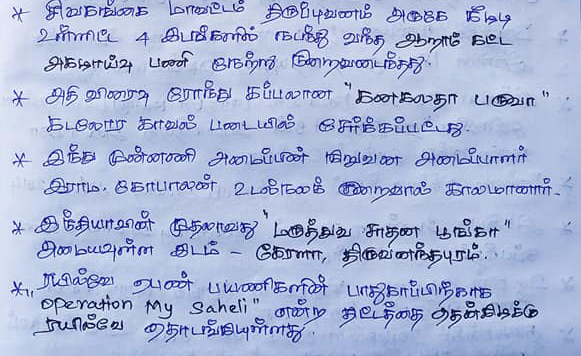 * சிவகங்கை மாவட்டம் திருப்புவனம் அருகே கீழடி
உள்ளிட்ட 4 இடங்களில் நடந்து வந்த ஆறாம் கட்ட
அகழாய்வு பணி நேற்று நிறைவடைந்தது.
* அதி விரைவு ரோந்து கப்பலான "கனகலதா பருவா"
கடலோர காவல் படையில் சேர்க்கப்பட்டது.
* இந்து முன்னணி அமைப்பின் நிறுவன அமைப்பாளர்
இராம. கோபாலன் உடல்நலக் குறைவால் காலமானார்.
* இந்தியாவின் முதலாவது "மருத்துவ சாதன பூங்கா"
அமையவுள்ள இடம் - கேரளா, திருவனந்தபுரம்.
* ரயில்வே பெண் பயணிகளின் பாதுகாப்பிற்காக
"Operation My Saheli" என்ற திட்டத்தை தென்கிழக்கு
ரயில்வே தொடங்கியுள்ளது.